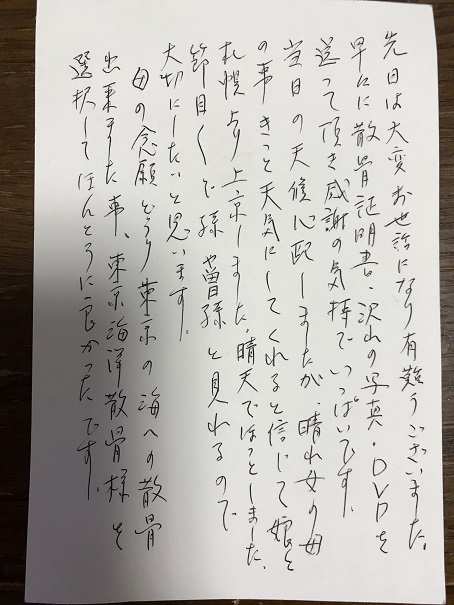 先日は大変お世話になり有難うございました。
早々に散骨証明書・沢山の写真・DVDを
送って頂き感謝の気持でいっぱいです。
当日の天候心配しましたが、晴れ女の母
の事きっと天気にしてくれると信じて娘と
札幌より上京しました。晴天でほっとしました。
節目くで孫や曽孫と見れるので
大切にしたいと思います。
母の念願どうり東京の海への散骨
出来ました事、東京海洋散骨様を
選択してほんとうに良かったです。